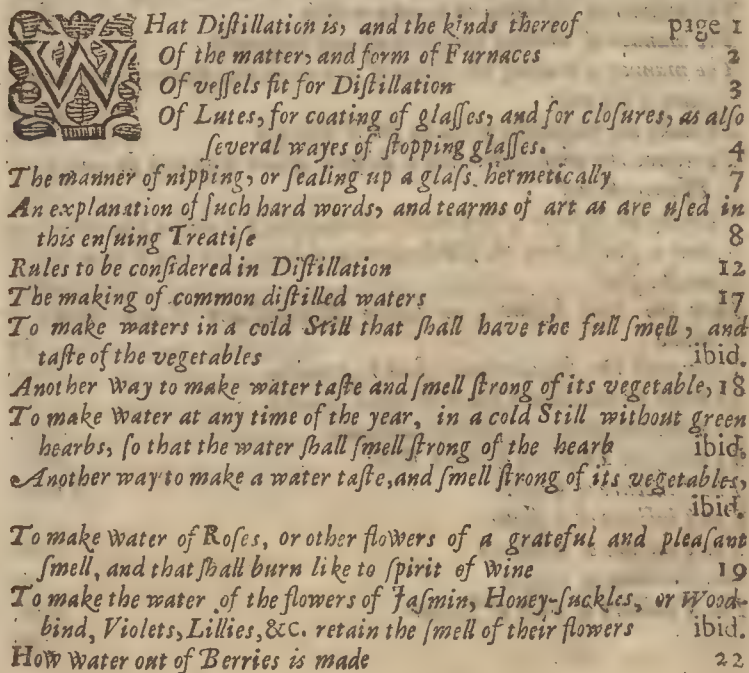 WHat Diſtillation is, and the kinds thereof page 1
Of the matter, and form of Furnaces 2
Of veſſels fit for Diſtillation 3
Of Lutes, for coating of glaſſes, and for cloſures, as alſo
ſeveral wayes of ſtopping glaſſes. 4
The manner of nipping, or ſealing up a glaſs hermetically 7
An explanation of ſuch hard words, and tearms of art as are uſed in
this enſuing Treatiſe 8
Rules to be conſidered in Diſtillation 12
The making of common diſtilled waters 17
To make waters in a cold Still that ſhall have the full ſmell, and
taſte of the vegetables ibid.
Another Way to make water taſte and ſmell ſtrong of its vegetable, 18
To make Water at any time of the year, in a cold Still without green
hearbs, ſo that the water ſhall ſmell ſtrong of the hearb ibid.
Another way to make a water taſte, and ſmell ſtrong of its vegetables,
ibid.
To make Water of Roſes, or other flowers of a grateful and pleaſant
ſmell, and that ſhall burn like to ſpirit of Wine 19
To make the water of the flowers of Jaſmin, Honey-ſuckles, or Wood-
bind, Violets, Lillies, &c. retain the ſmell of their flowers ibid.
How Water out of Berries is made 22